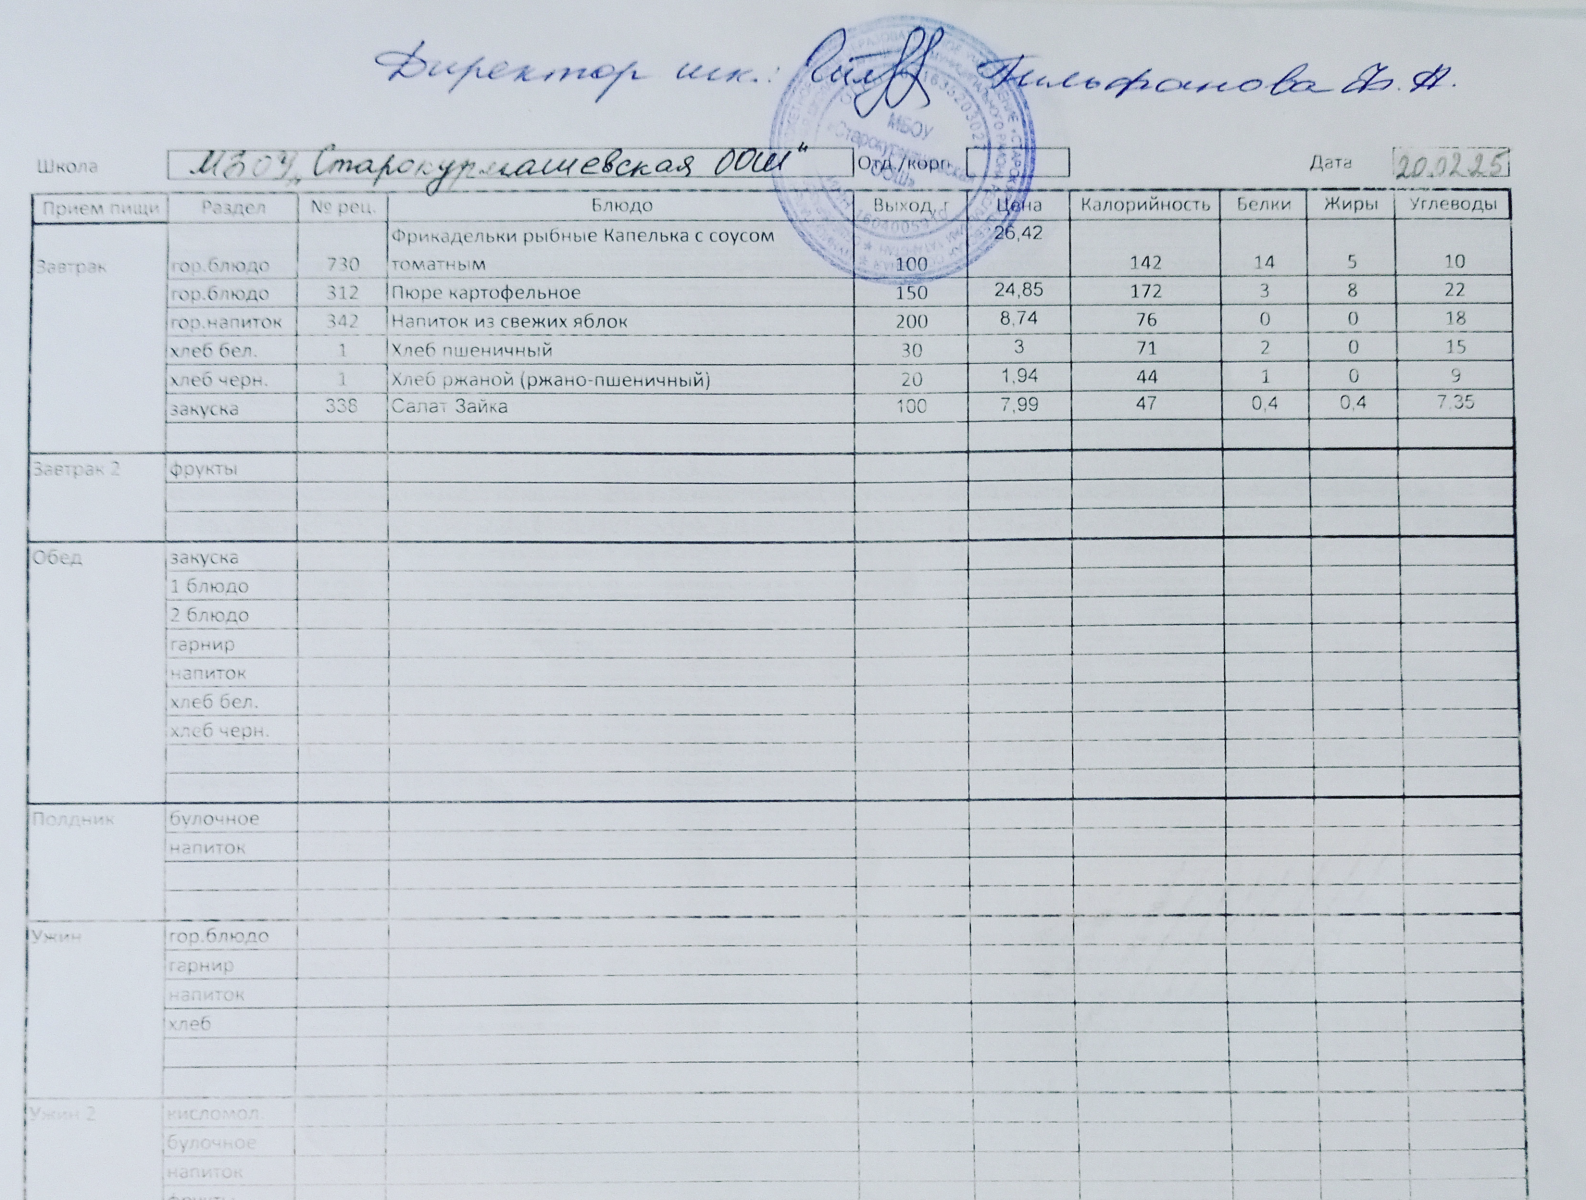 Директор шк.: Гильфанова Ф. А.
МБОУ
ООШ»
Школа МБОУ „Старокурмашевская ООШ" Отд./корп Дата 20.02.25
Прием пищи Раздел № рец. Блюдо Выход, г Цена Калорийность Белки Жиры Углеводы
Фрикадельки рыбные Капелька с соусом 26,42
Завтрак гор.блюдо 730 томатным 100 142 14 5 10
гор.блюдо 312 Пюре картофельное 150 24,85 172 3 8 22
гор.напиток 342 Напиток из свежих яблок 200 8,74 76 0 0 18
хлеб бел. 1 Хлеб пшеничный 30 3 71 2 0 15
хлеб черн. 1 Хлеб ржаной (ржано-пшеничный) 20 1,94 44 1 0 9
закуска 338 Салат Зайка 100 7,99 47 0,4 0,4 7,35
Завтрак 2 фрукты
Обед закуска
1 блюдо
2 блюдо
гарнир
напиток
хлеб бел.
хлеб черн.
Полдник булочное
напиток
Ужин гор.блюдо
гарнир
напиток
хлеб
Ужин 2 кисломол.
булочное
напиток
фрукты